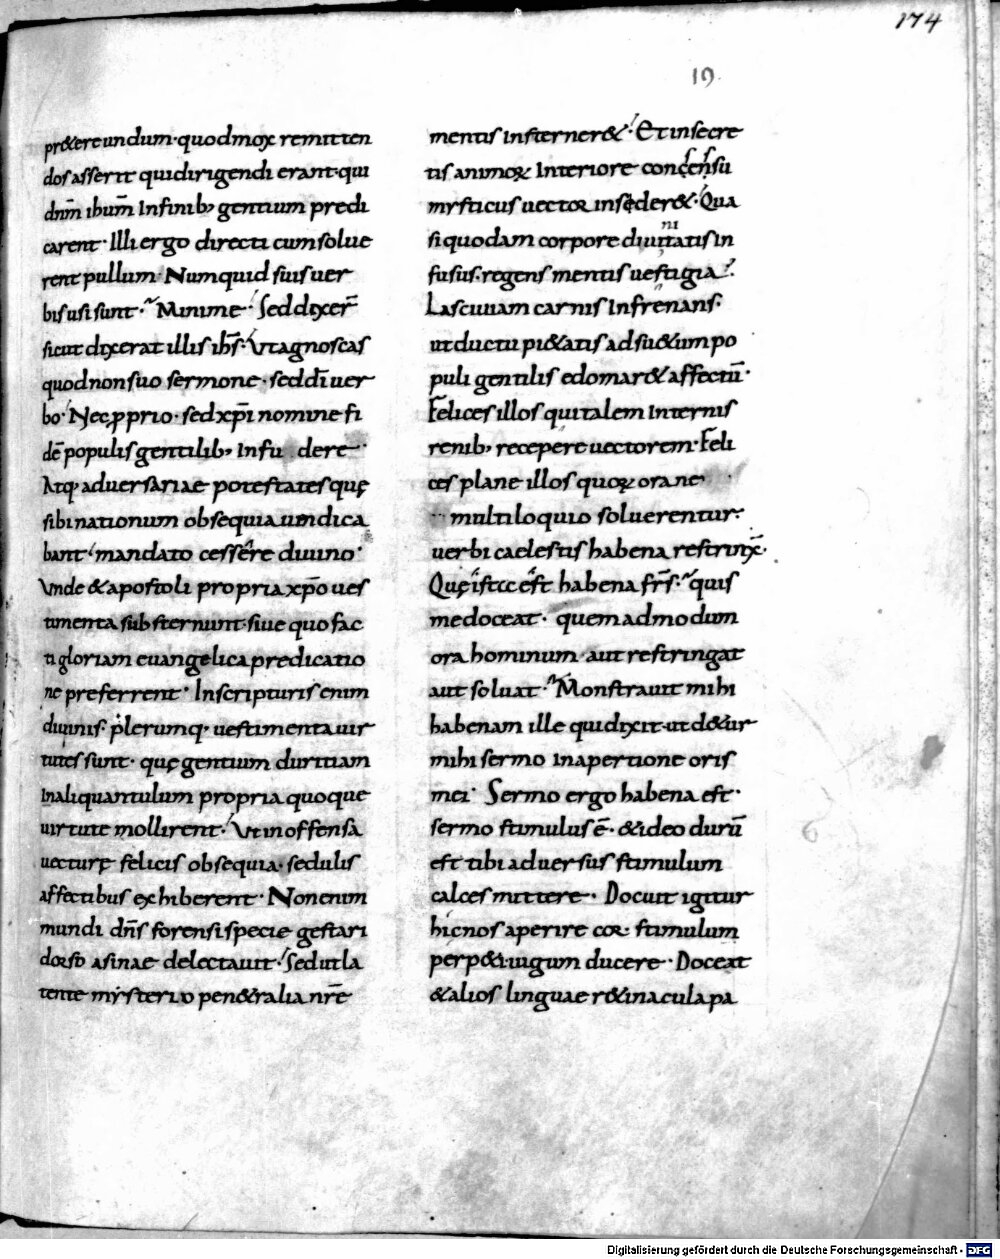 174
19
pr&ereundum· quodmox remitten
dos asserit quidirigendi erant· qui
dn̄m ihum̄ Infinib; gentium predi
carent· Illi ergo directi cum solue
rent pullum· Numquid suis uer
bis usi sunt· Minime· Sed dixer̄
sicut dixerat illis ih̄s· Ut agnoscas
quod non suo sermone· sed di uer
bo· Nec ꝓprio· sed xp̄i nomine fi
dē populis gentilib; Infu dere·
Atq; aduersariae potestates quę
sibi nationum obsequia uindica
bant· mandato cessere diuino·
Unde & apostoli propria xp̄o ues
timenta substernunt· siue quo fac
ti gloriam euangelica predicatio
ne preferrent· Inscripturis enim
diuinis· plerumq; uestimenta uir
tutes sunt· quę gentium duritiam
Inaliquantulum propria quoque
uirtute mollirent· Ut inoffensa
uecturę felicis obsequia· sedulis
affectibus exhiberent· Non enim
mundi dn̄s forensi specie gestari
dorso asinae delectauit· Sed ut la
tente mysterio pen&ralia nr̄e
mentis insterner&· Et in secre
tis animoꝝ Interiore concensu
mysticus uector insęder&· Qua
si quodam corpore diuinitatis in
fusus· regens mentis uestigia·
Lasciuiam carnis Infrenans·
ut ductu pi&atis adsu&um po
puli gentilis edomar& affectū·
Felices illos qui talem Internis
renib; recepere uectorem· Feli
ces plane illos quoꝝ ora ne
multiloquio soluerentur·
uerbi caelestis habena restrinx̄·
Quę istęc est habena fr̄s· quis
me doceat· quem ad modum
ora hominum· aut restringat
aut soluat· Monstrauit mihi
habenam ille qui dixit· ut d&ur
mihi sermo Inapertione oris
mei· Sermo ergo habena est·
sermo stimulus ē· & ideo durū
est tibi aduersus stimulum
calces mittere· Docuit igitur
hic nos aperire cor· stimulum
perp&i· iugum ducere· Doceat
& alios linguae r&inacula pa
Digitalisierung gefördert durch die Deutsche Forschungsgemeinschaft - DFG